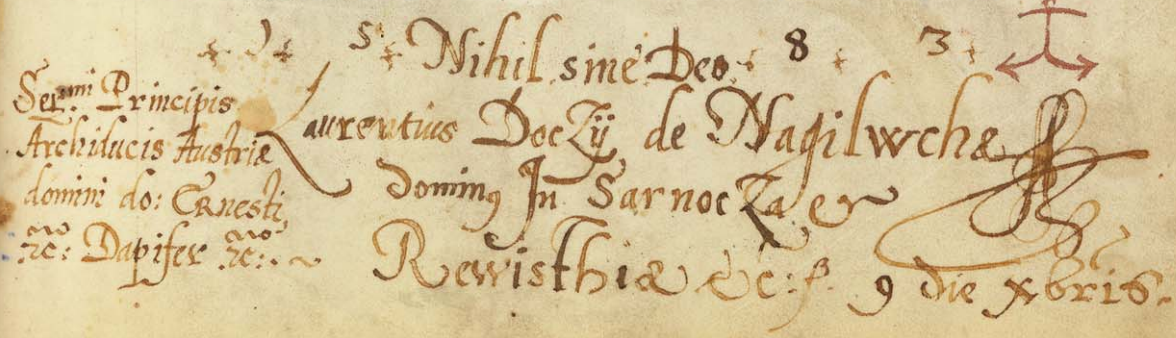 1 5 Nihil sine Deo 8 3
Ser.mi Principis
Archiducis Austriæ
domini do: Ernesti
etc: Dapifer etc:
Laurentius Doczÿ de Nagilwche
dominus In Sarnocza er
Rewisthiæ &c:
9 die xbris